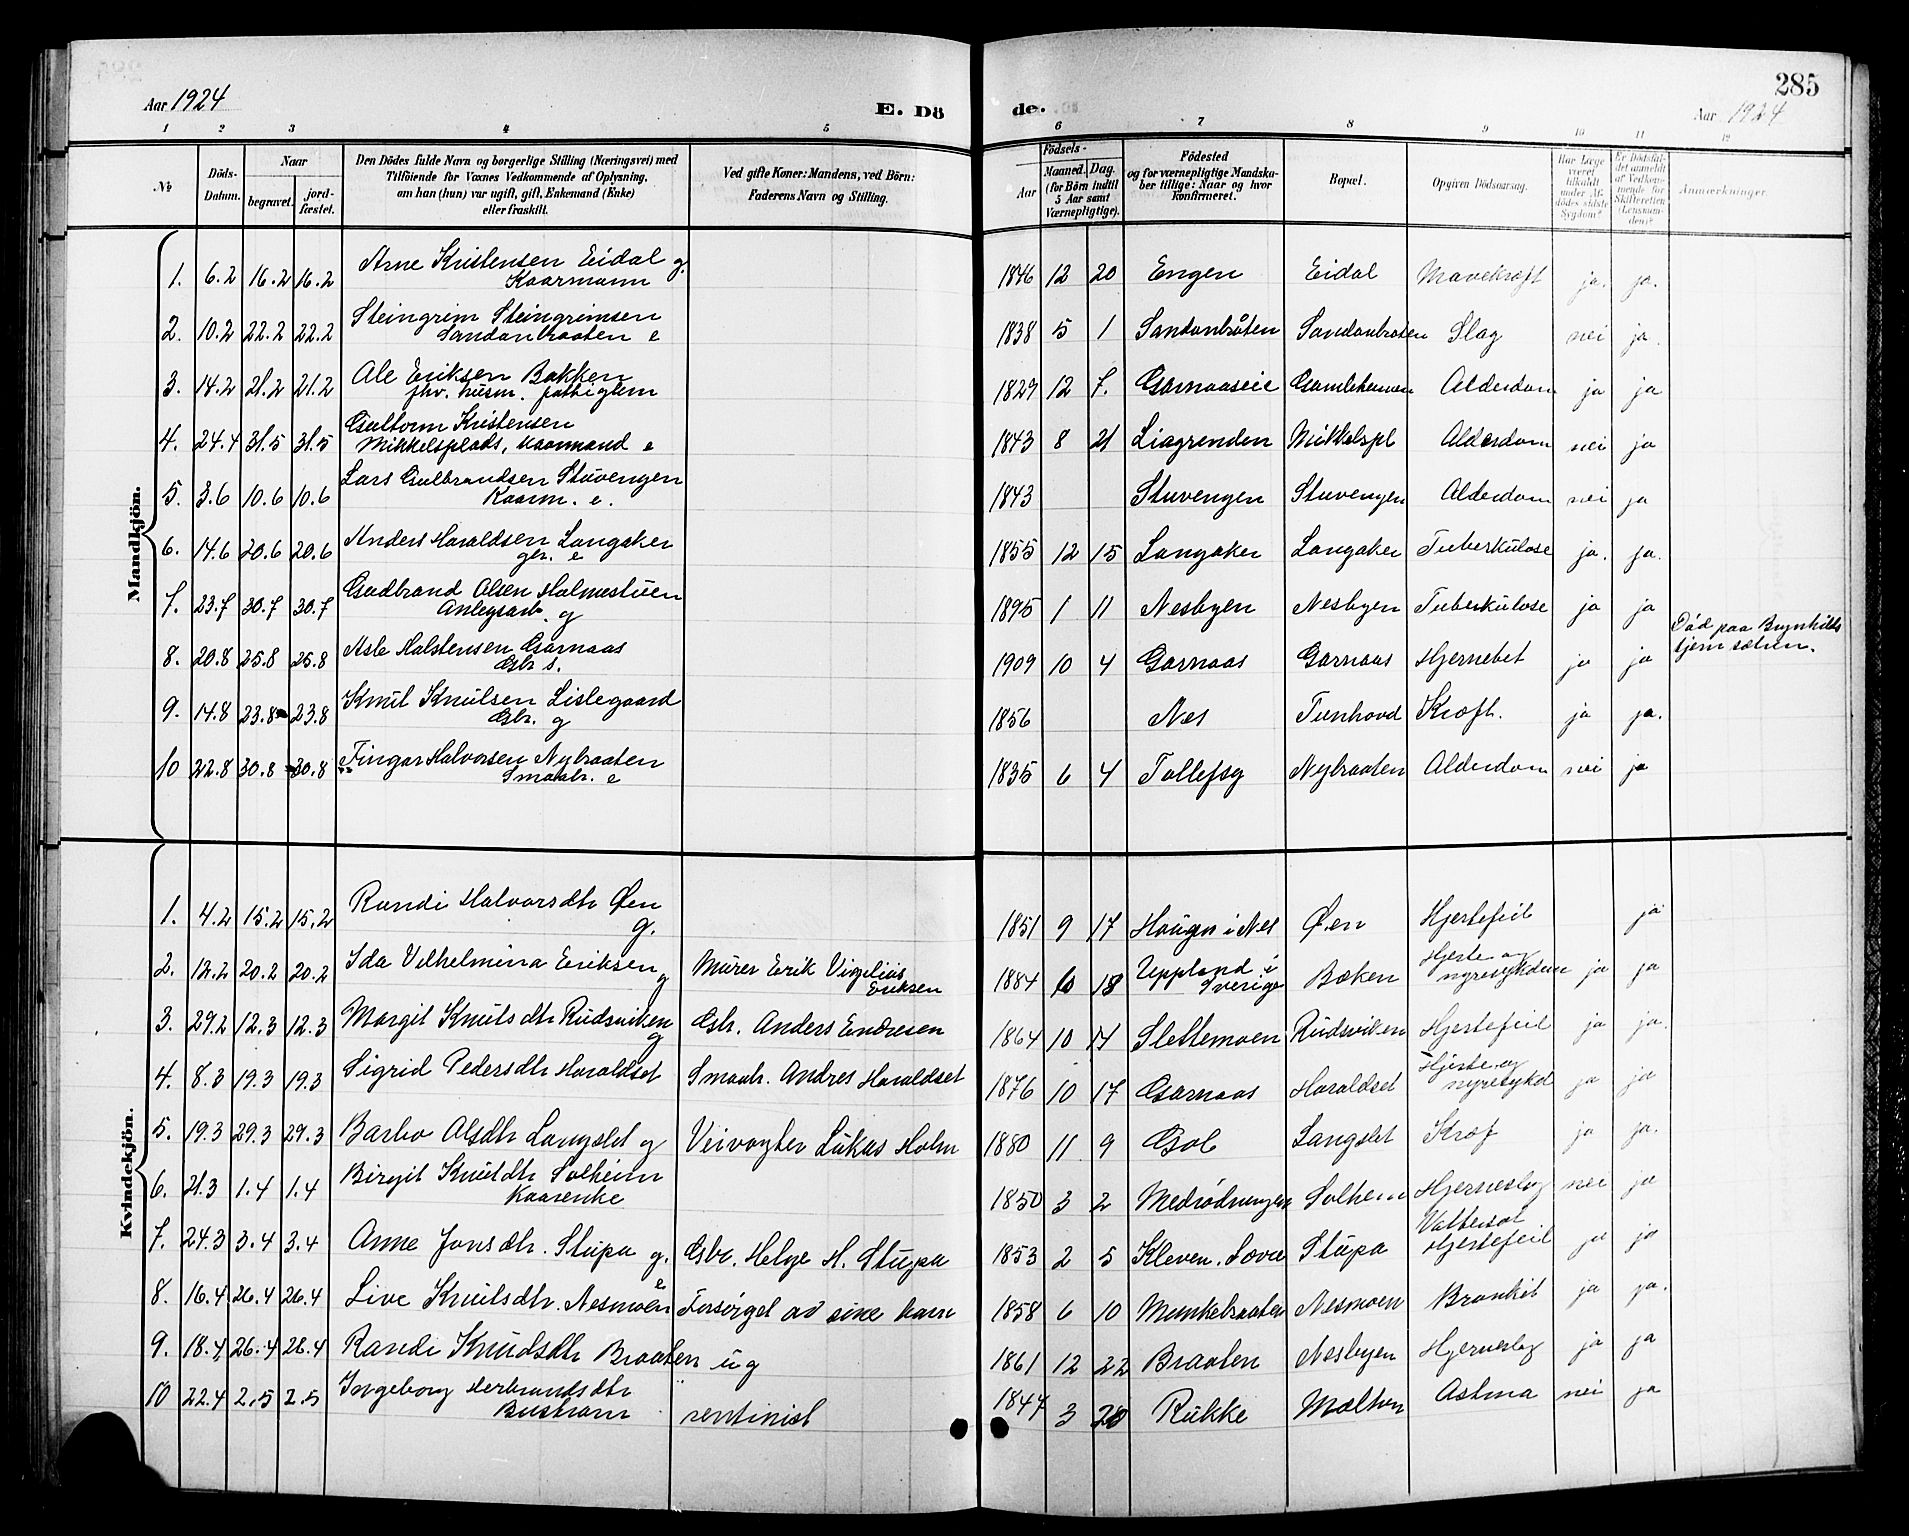 285
Aar 1924
E. Dö
de.
Aar 1924
1 2 3 4 5 6 7 8 9 10 11 12
№
Döds-Datum.
Naar
begravet.
jord-fæstet.
Den Dödes fulde Navn og borgerlige Stilling (Næringsvei) med
Tilföiende for Voxnes Vedkommende af Oplysning,
om han (hun) var ugift, gift, Enkemand (Enke)
eller fraskilt.
Ved gifte Koner: Mandens, ved Börn:
Faderens Navn og Stilling.
Födsels-
Aar
Maaned. Dag.
(for Börn indtil
5 Aar samt
Værnepligtige).
Födested
og for værnepligtige Mandska-
ber tillige: Naar og hvor
konfirmeret.
Bopæl.
Opgiven Dödsaarsag.
Har Læge
været
tilkaldt
under Af-
dödes sidste
Sygdom?
Er Dödsfal-
det anmeldt
af Vedkom-
mende for
Skifteretten
(Lensman-
den)?
Anmærkninger.
Mandkjön.
1. 6.2 16.2 16.2 Arne Kristensen Eidal g. Kaarmann 1846 12 20 Engen Eidal Mavekræft ja. ja.
2. 10.2 22.2 22.2 Steingrim Steingrimsen Sandanbraaten e 1838 5 1 Sandanbråten Sandanbraten Slag nei ja.
3. 14.2 21.2 21.2 Ole Eriksen Bakken fhv. husm. fattiglem 1829 12 7. Garnaaseie Gamlehemmen Alderdom ja ja
4. 24.4 31.5 31.5 Guttorm Kristensen Mikkelsplads, kaarmand e 1843 8 21 Liagrenden Mikkelspl Alderdom nei ja
5. 3.6 10.6 10.6 Lars Gulbrandsen Stuvengen Kaarm. e. 1843 Stuvengen Stuvengen Alderdom nei ja
6. 14.6 20.6 20.6 Anders Haraldsen Langaker gbr. e 1855 12 15 Langaker Langaker Tuberkulose ja. ja.
7. 23.7 30.7 30.7 Gudbrand Olsen Holmestuen Anlegsarb. g 1895 1 11 Nesbyen Nesbyen Tuberkulose ja ja
8. 20.8 25.8 25.8 Asle Halstensen Garnaas Gbr s. 1909 10 4 Garnaas Garnaas Hjernebet ja ja Död paa Brynhilds tjern sætren.
9. 14.8 23.8 23.8 Knut Knutsen Lislegaard Gbr. g 1856 Nes Tunhovd Kræft. ja ja.
10 22.8 30.8 30.8 Fingar Halvorsen Nybraaten Smaabr. e 1835 6 4 Tollefsg Nybraaten Alderdom nei ja
Kvindekjön.
1. 4.2 15.2 15.2 Randi Halvorsdtr Øen g. 1851 9 17 Haugen i Nes Øen Hjertefeil ja
2. 12.2 20.2 20.2 Ida Vilhelmina Eriksen g Murer Erik Vigelius Eriksen 1884 6 18 Uppland i Sverige Bæken Hjerte og nyresykdom ja ja
3. 29.2 12.3 12.3 Margit Knutsdtr Rudsviken g Gbr. Anders Endresen 1864 10 14 Slettemoen Rudsviken Hjertefeil ja ja.
4. 8.3 19.3 19.3 Sigrid Pedersdtr Haraldset Smaabr. Andres Haraldset 1876 10 17 Garnaas Haraldset Hjerte og nyresykd ja ja
5. 19.3 29.3 29.3 Barbo Olsdtr Langslet g Veivogter Lukas Holm 1880 11 9 Gol Langslet Kræf ja ja.
6. 21.3 1.4 1.4 Birgit Knutdtr Solheim Kaarenke 1850 3 2 Medrødningen Solhem Hjerneslag nei ja
7. 24.3 3.4 3.4 Anne Jonsdtr. Stupa g. Gbr. Helge H. Stupa 1853 2 5 Kleven. Stupa Vattersot Hjertefeil ja ja
8. 16.4 26.4 26.4 Live Knutsdtr. Nesmoen e Forsörget av sine barn 1858 6 10 Munkebraaten Nesmoen Bronkit ja ja.
9. 18.4 26.4 26.4 Randi Knudsdtr Braaten ug 1861 12 22 Braaten Nesbyen Hjerneslag ja ja
10 22.4 2.5 2.5 Ingeborg Herbrandsdtr rentinist 1847 3 20 Rukke Astma nei ja